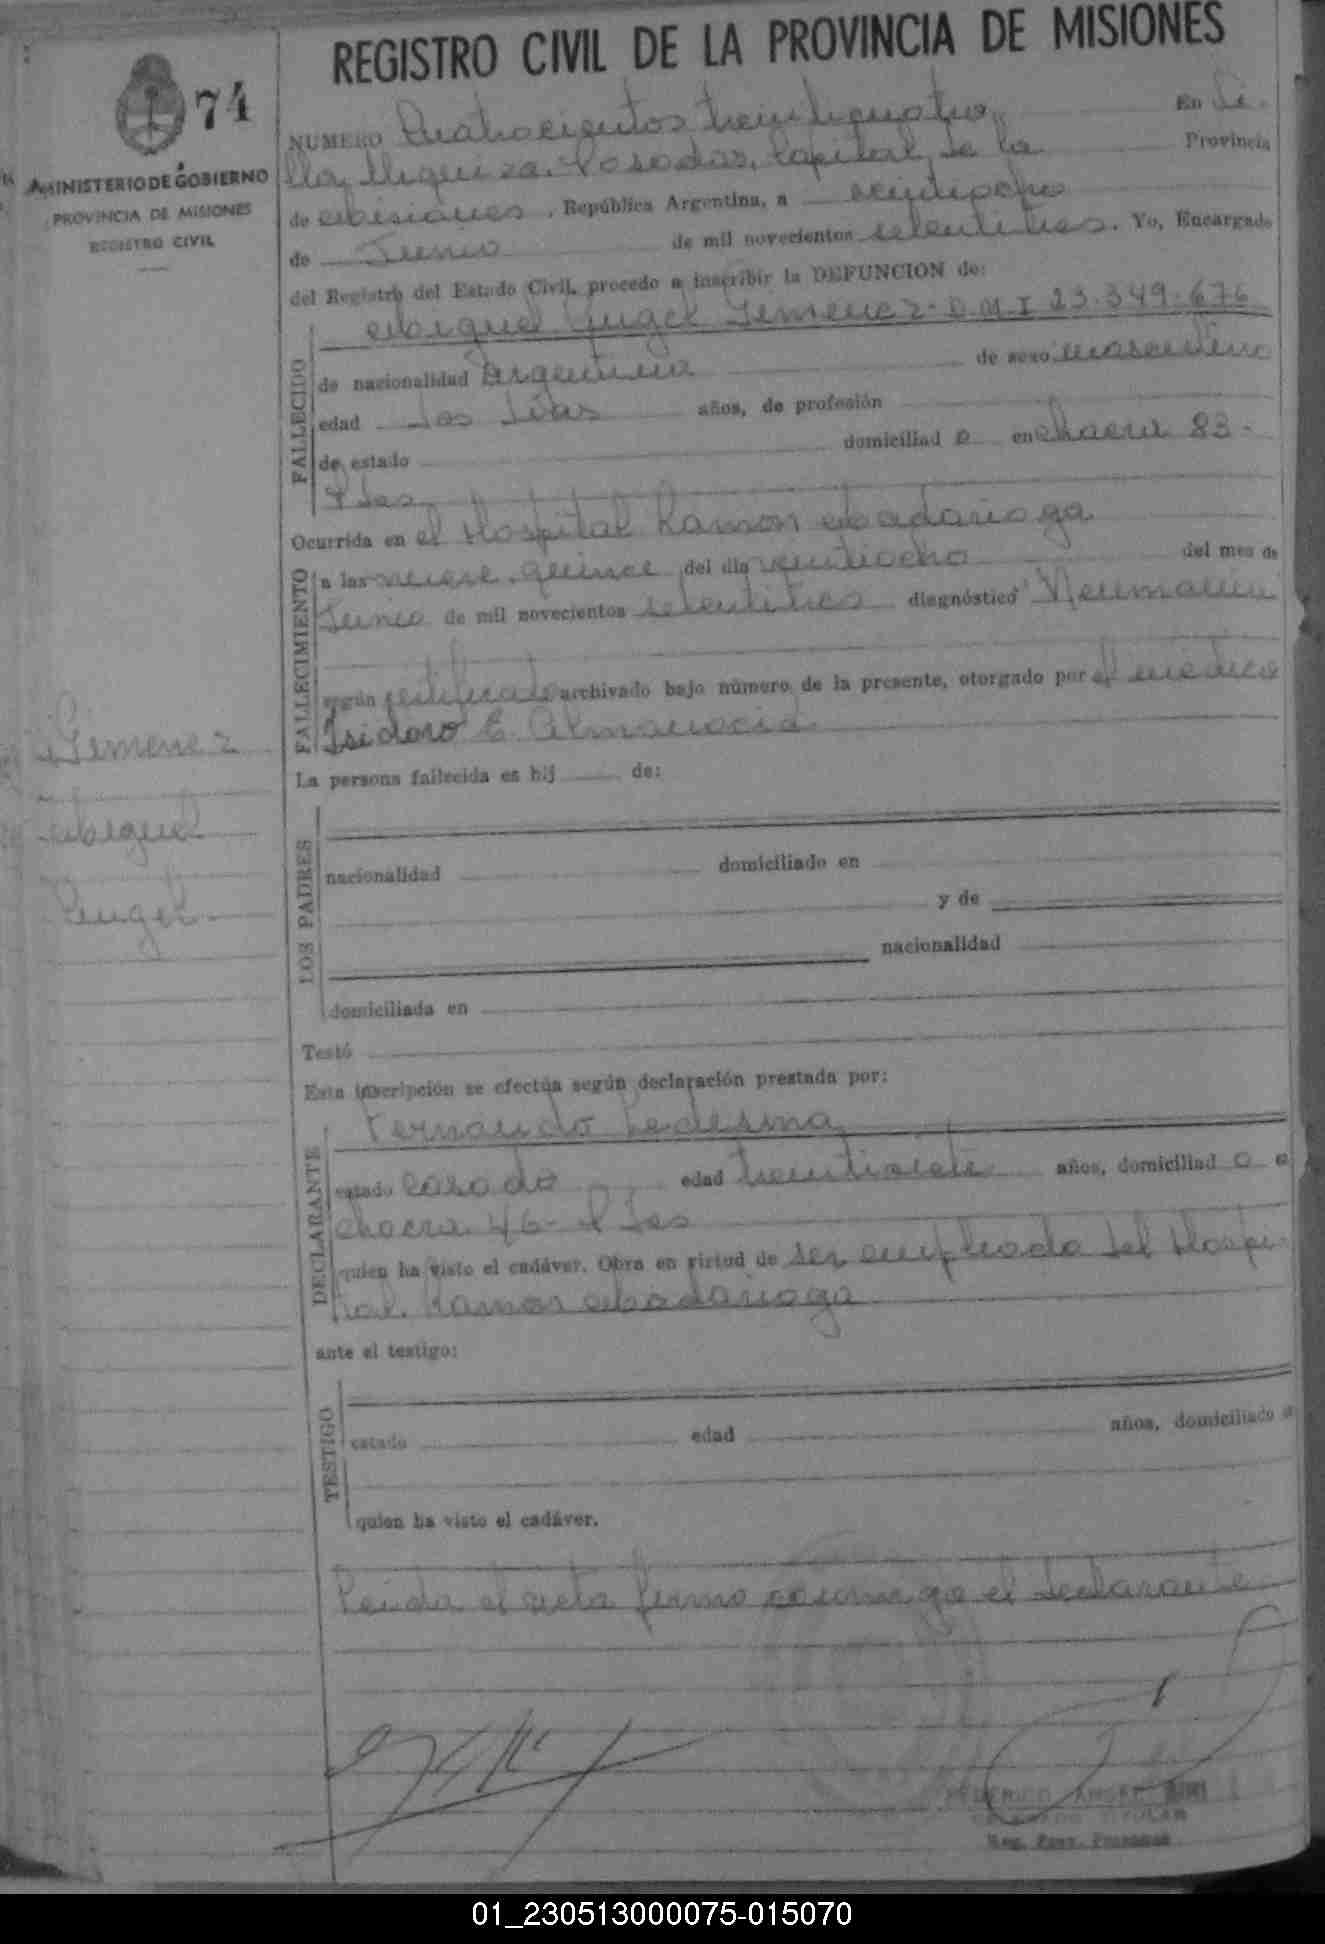 REGISTRO CIVIL DE LA PROVINCIA DE MISIONES
74
MINISTERIO DE GOBIERNO
PROVINCIA DE MISIONES
REGISTRO CIVIL
NUMERO Cuatrocientos treinticuatro En Vi-
lla Urquiza, Posadas, Capital de la Provincia
de Misiones, República Argentina, a veintiocho
de Junio de mil novecientos setentitres. Yo, Encargado
del Registro del Estado Civil, procedo a inscribir la DEFUNCION de:
FALLECIDO
Miguel Angel Jimenez - D.M.I 23.349.676
de nacionalidad Argentina de sexo masculino
edad dos días años, de profesión
de estado domiciliad o en chacra 83-
Pdas
Ocurrida en el Hospital Ramon Madariaga
FALLECIMIENTO
a las nueve, quince del día veintiocho del mes de
Junio de mil novecientos setentitres diagnóstico
según certificado archivado bajo número de la presente, otorgado por el médico
Isidoro E. Almanacid
La persona fallecida es hij de:
Jimenez
Miguel
Angel
LOS PADRES
nacionalidad domiciliado en
y de
nacionalidad
domiciliada en
Testó
Esta inscripción se efectúa según declaración prestada por:
DECLARANTE
Fernando Ledesma
estado casado edad treintisiete años, domiciliad o e
chacra 46 - Pdas
quien ha visto el cadáver. Obra en virtud de ser empleado del Hospi-
tal Ramon Madariaga
ante el testigo:
TESTIGO
estado edad años, domiciliado e
quien ha visto el cadáver.
Leida el acta firma conmigo el declarante
FEDERICO ANGEL
TITULAR
Reg. Prov. Personas
01_230513000075-015070